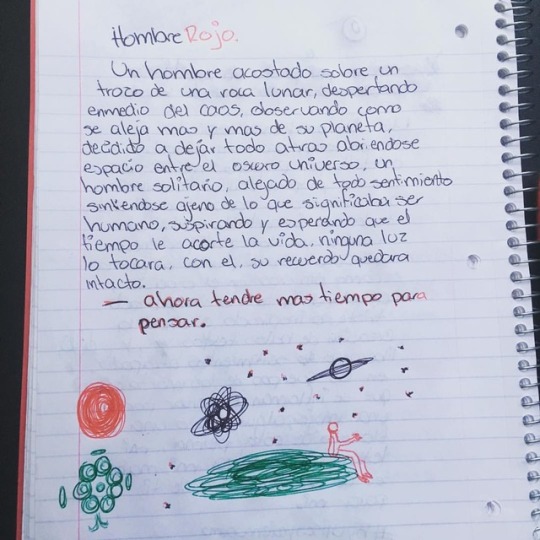 Hombre Rojo.
Un hombre acostado sobre un
trozo de una roca lunar, despertando
enmedio del caos, observando como
se aleja mas y mas de su planeta,
decidido a dejar todo atras abriendose
espacio entre el oscuro universo, un
hombre solitario, alejado de todo sentimiento
sintiendose ajeno de lo que significaba ser
humano, suspirando y esperando que el
tiempo le acorte la vida, ninguna luz
lo tocara, con el, su recuerdo quedara
intacto.
— ahora tendre mas tiempo para
pensar.